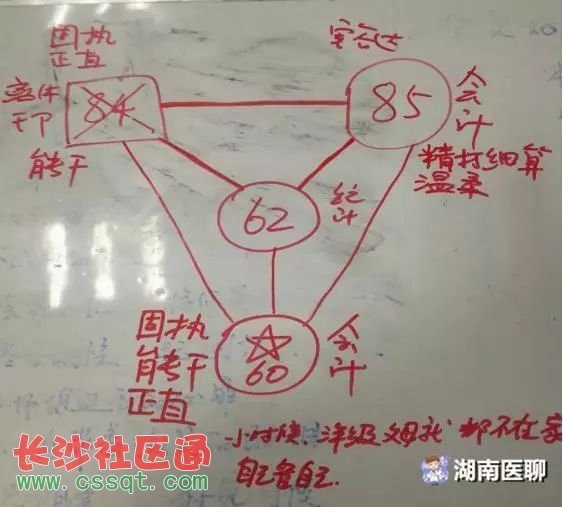 固执
正直
84
能干
85
会计
精打细算
温柔
62
统计
固执
能干
正直
60
会计
小时候
父母
都不在家
自己
自己.
长沙社区通
www.cssqt.com
湖南医聊